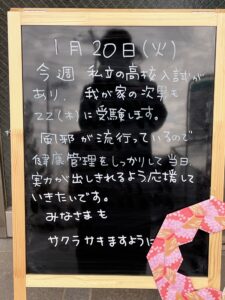 1月20日(火)
今週 私立の高校入試が
あり、我が家の次男も
22(木)に受験します。
風邪が流行っているので
健康管理をしっかりして当日
実力が出しきれるよう応援して
いきたいです。
みなさまも
サクラサキますように